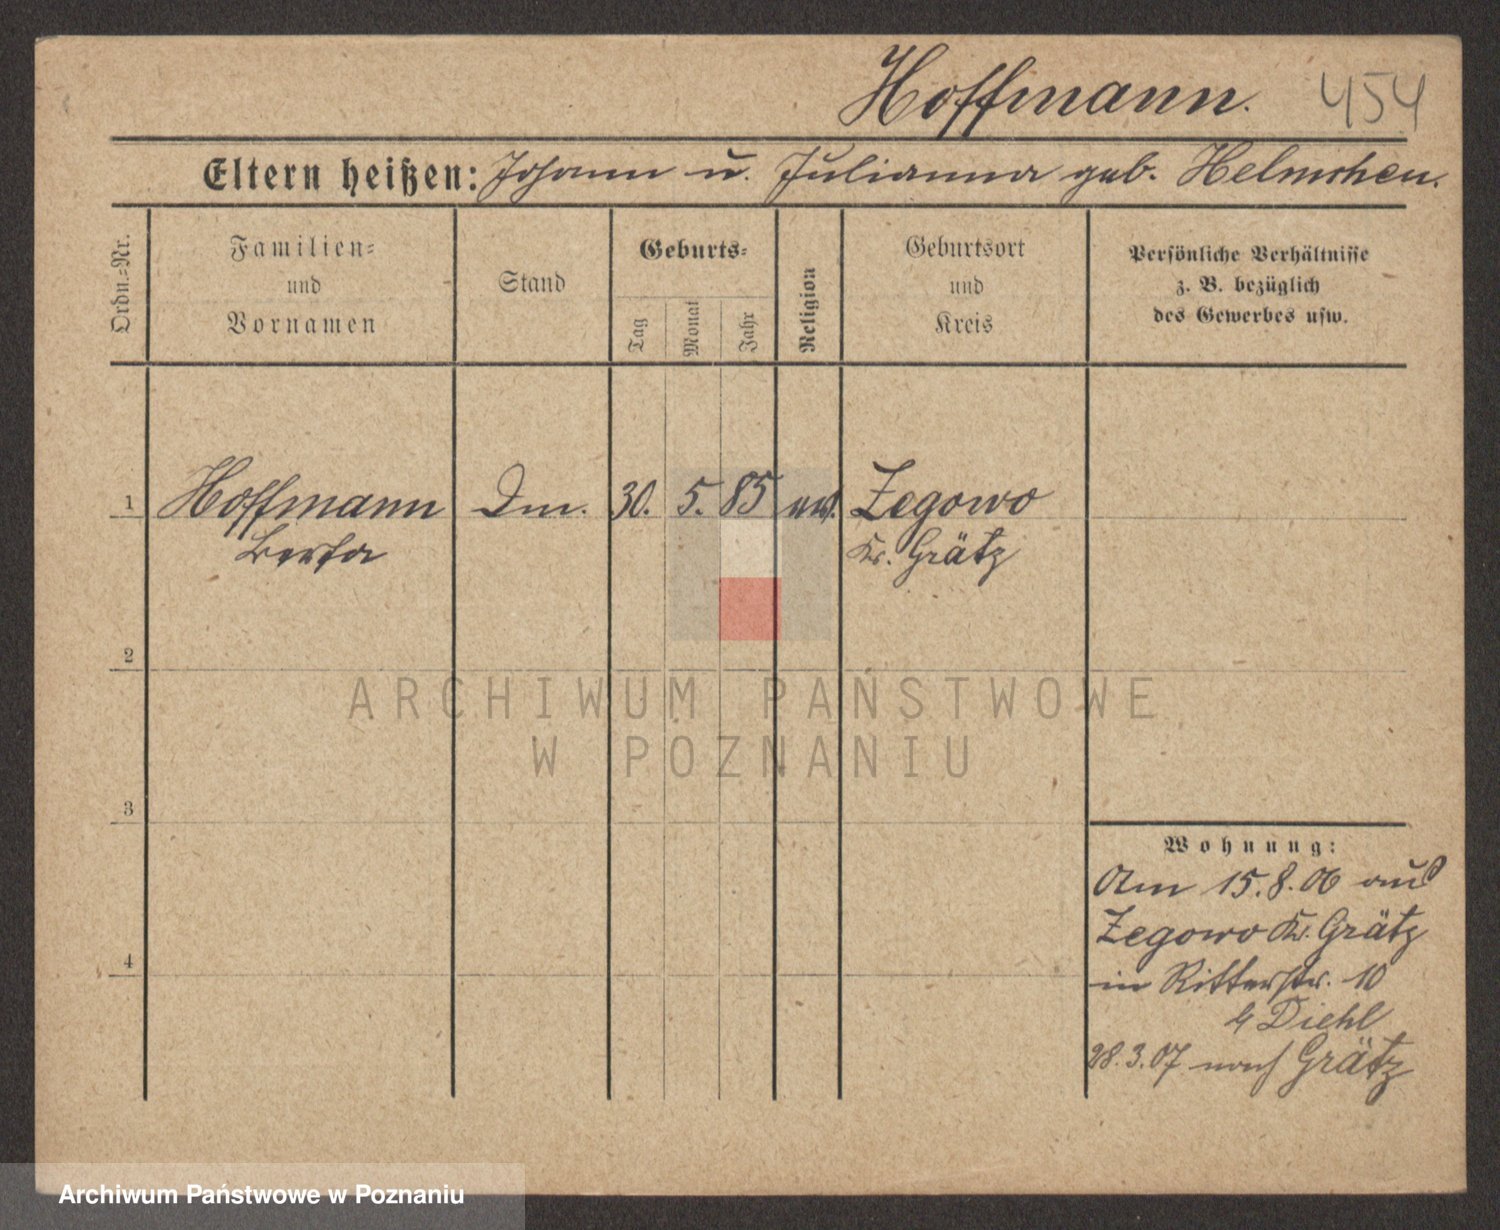 Hoffmann. 454
Eltern heißen: Johann u. Julianna geb. Helmchen.
Ordn.-Nr.
Familien-
und
Vornamen
Stand
Geburts-
Tag
Monat
Jahr
Religion
Geburtsort
und
Kreis
Persönliche Verhältnisse
z. B. bezüglich
des Gewerbes usw.
1 Hoffmann 30. 5. 85 Zegowo
Berta Kr. Grätz
2
3
4
ARCHIWUM PAŃSTWOWE
W POZNANIU
Wohnung:
Am 15.8.06 aus
Zegowo Kr. Grätz
in Ritterstr. 10
Diehl
28.3.07 nach Grätz
Archiwum Państwowe w Poznaniu